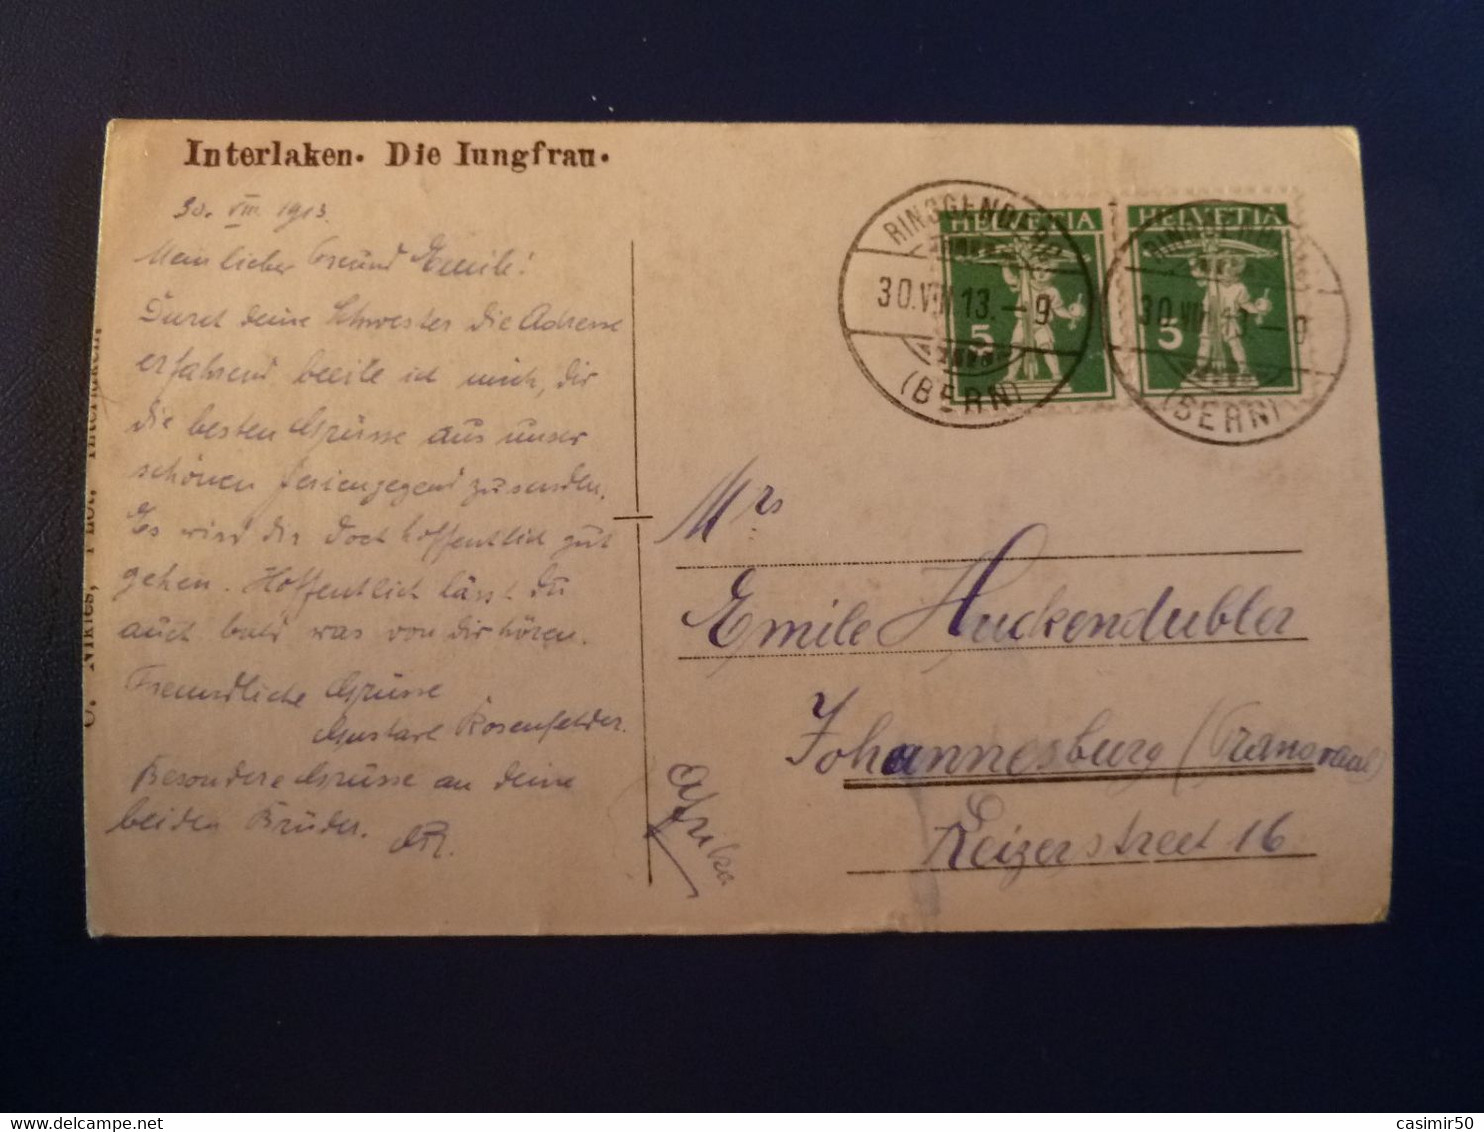 Interlaken. Die Iungfrau.
30. VIII 1913.
Mein lieber Freund Emile!
Durch deine Schwester die Adresse
erfahrend beeile ich mich, dir
die besten Grüsse aus unser
schönen Feriengegend zu senden.
Es wird dir doch hoffentlich gut
gehen. Hoffentlich lässt du
auch bald was von dir hören.
Freundliche Grüsse
Gustave Rosenfelder.
Besondere Grüsse an deine
beiden Brüder. GR.
Nikles, Phot. Interlaken.
HELVETIA
5
HELVETIA
5
RINGGENBERG
30.VIII.13.-9
(BERN)
RINGGENBERG
30.VIII.13.-9
(BERN)
Mrs
Emile Huckendubler
Johannesburg (Transvaal)
Keizerstreet 16
Afrika
casimir50